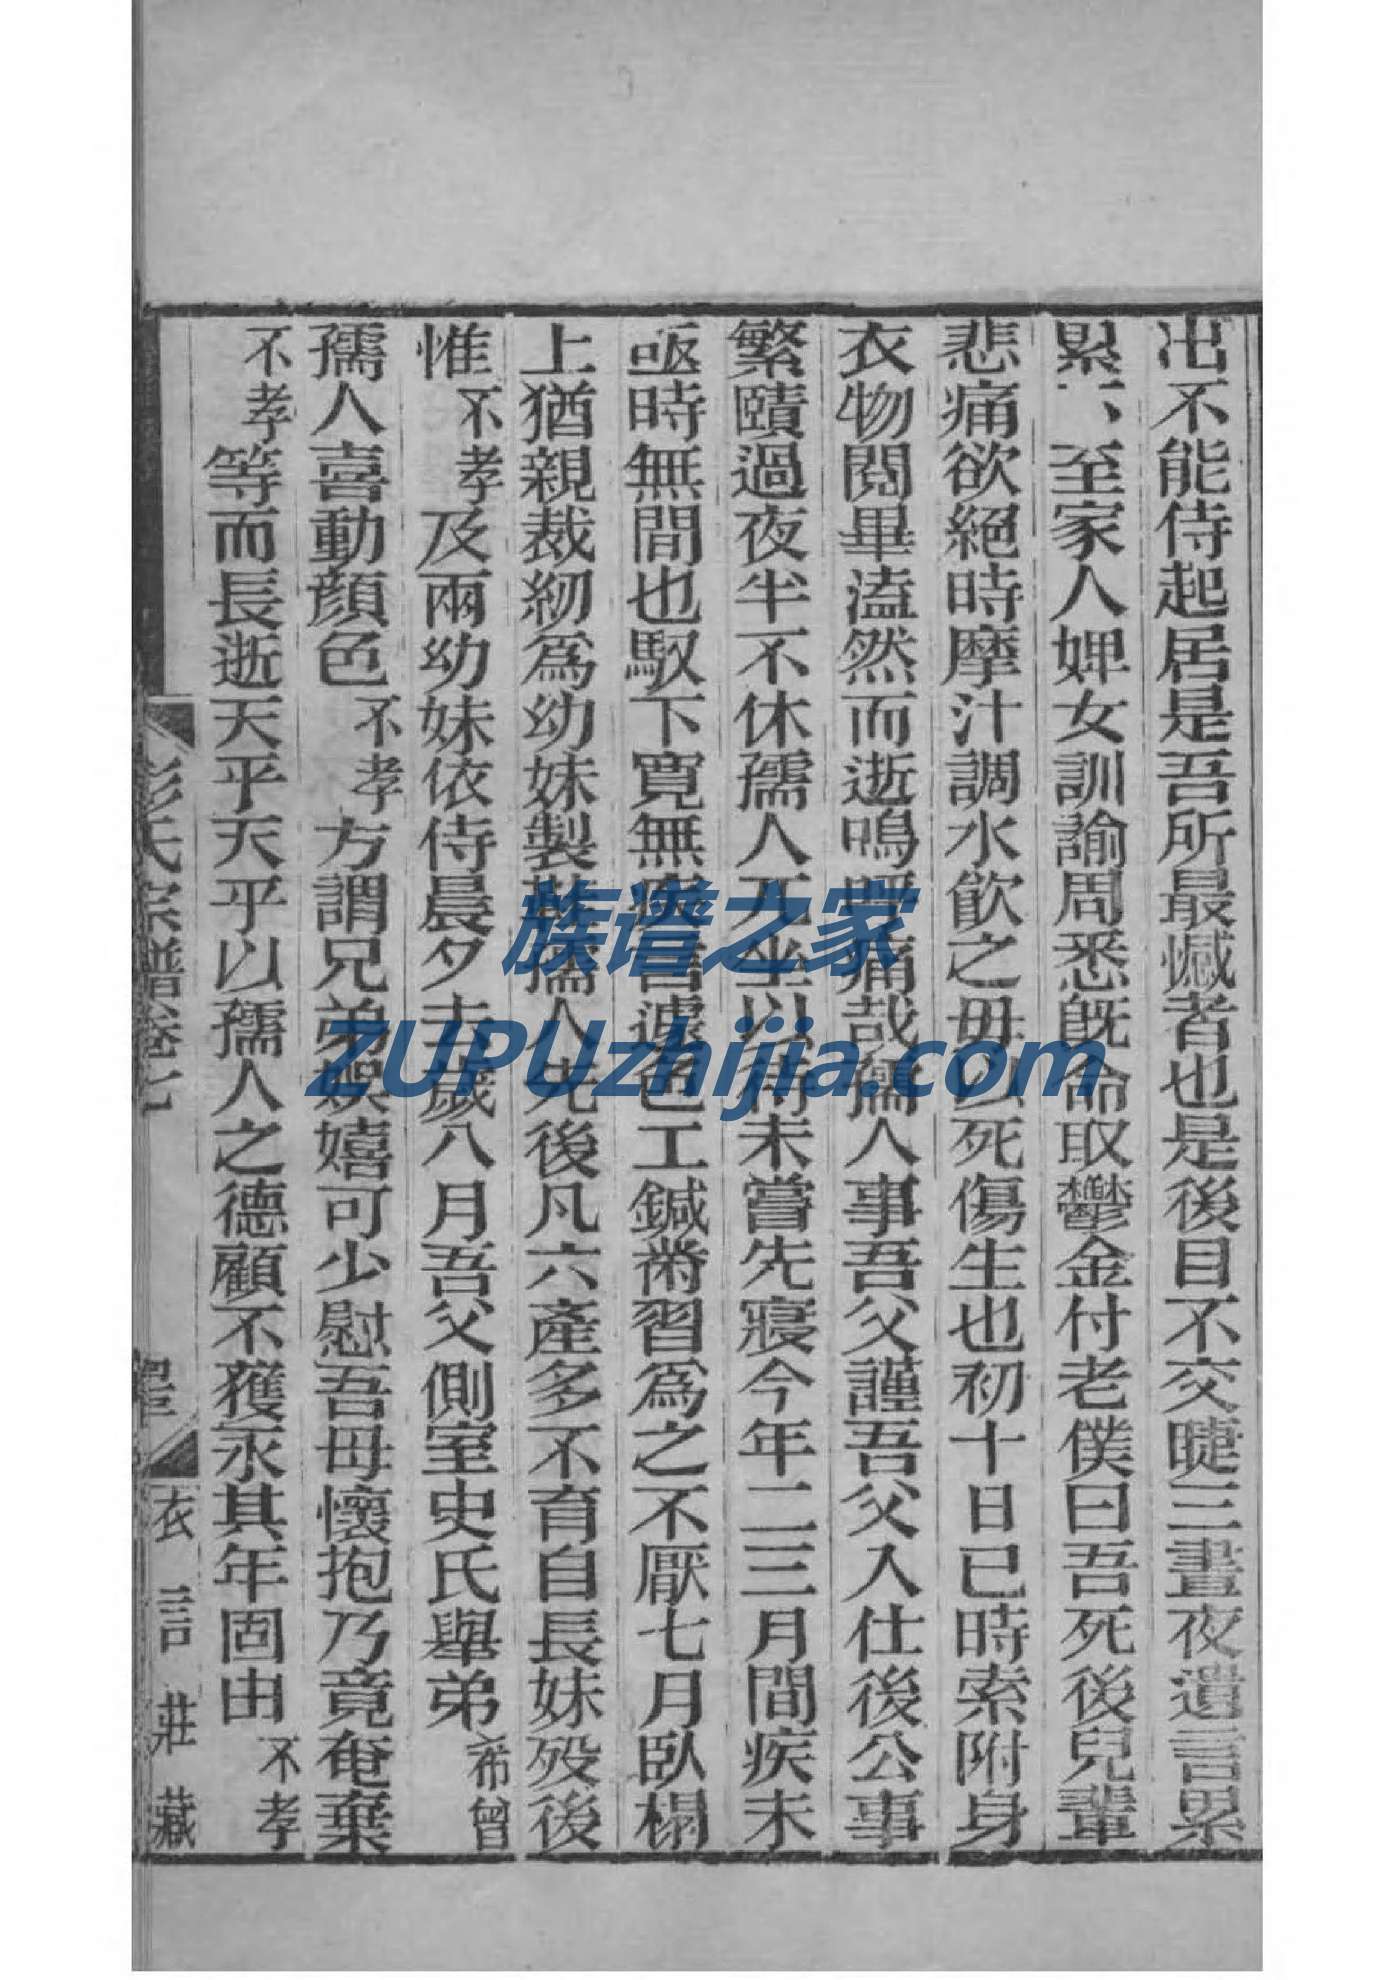 出不能侍起居是吾所最憾者也是後目不交睫三晝夜遺言累
累不至家人婢女訓諭周悉旣命取鬱金付老僕曰吾死後兒輩
悲痛欲絕時摩汁調水飲之毋以死傷生也初十日已時索附身
衣物閱畢溘然而逝嗚呼痛哉孺人事吾父謹吾父入仕後公事
繁賾過夜半不休孺人兀坐以待未嘗先寢今年二三月間疾未
亟時無間也馭下寬無疾言遽色工鍼黹習爲之不厭七月臥榻
上猶親裁紉爲幼妹製孺人先後凡六產多不育自長妹歿後
惟不孝及兩幼妹依侍晨夕去歲八月吾父側室史氏舉弟希曾
孺人喜動顏色不孝方謂兄弟娛嬉可少慰吾母懷抱乃竟奄棄
不孝等而長逝天乎天乎以孺人之德顧不獲永其年固由不孝
彭氏宗譜卷七
衣言莊藏
族谱之家
ZUPUzhijia.com